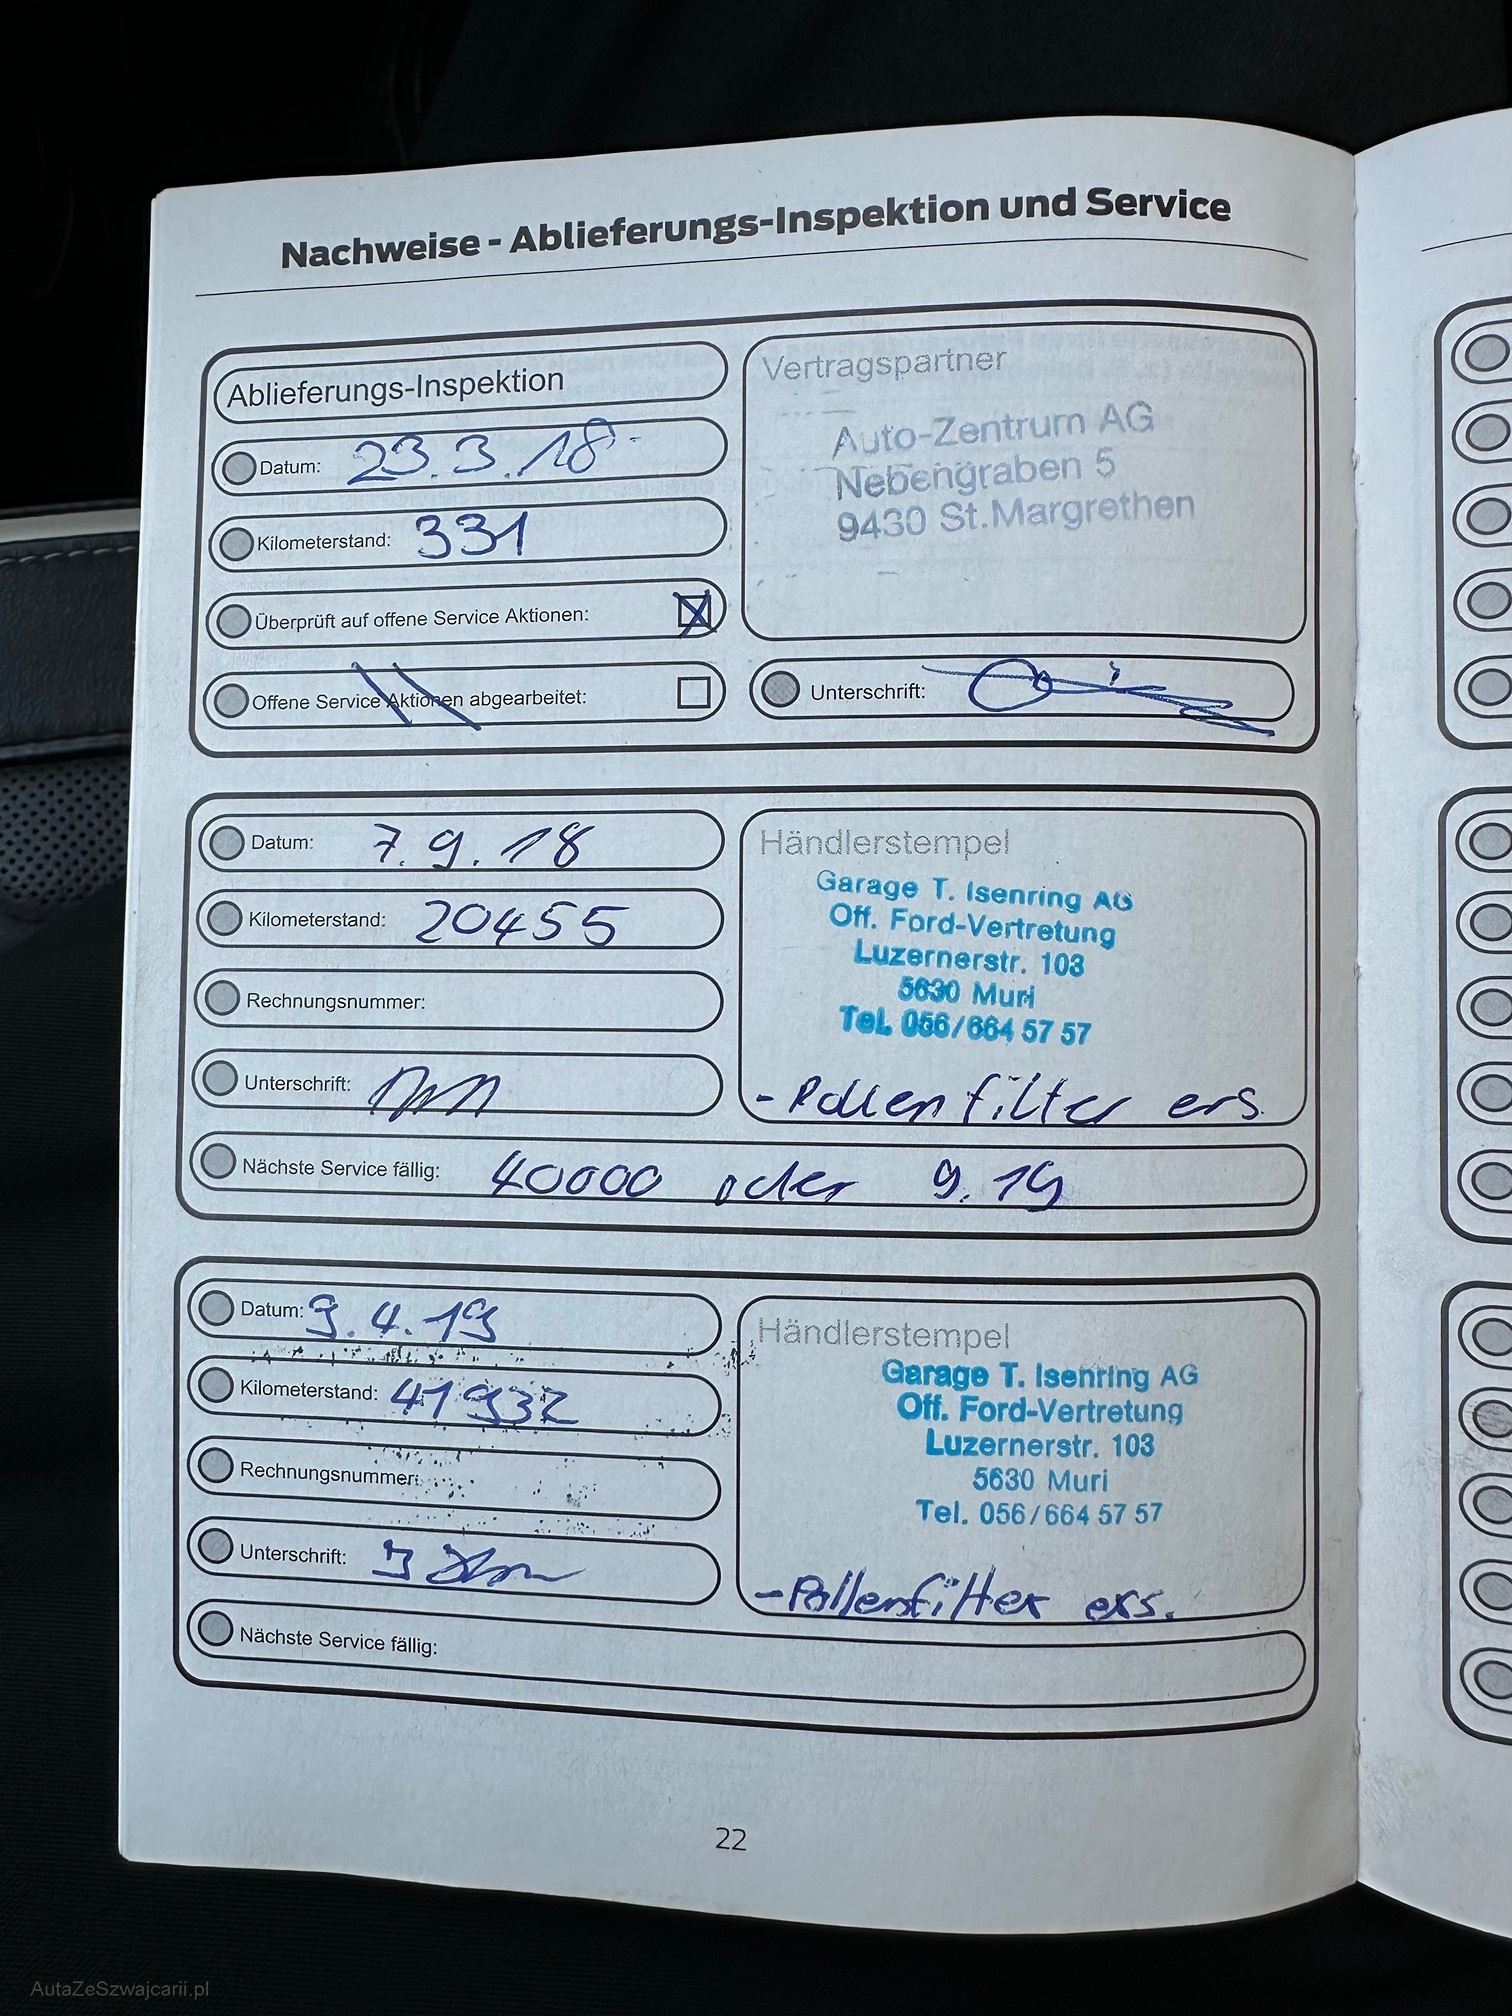 Nachweise - Ablieferungs-Inspektion und Service
Ablieferungs-Inspektion
Datum: 23.3.18.
Kilometerstand: 331
Überprüft auf offene Service Aktionen:
Offene Service Aktionen abgearbeitet:
Vertragspartner
Auto-Zentrum AG
Nebengraben 5
9430 St.Margrethen
Unterschrift:
Datum: 7.9.18
Kilometerstand: 20455
Rechnungsnummer:
Unterschrift:
Händlerstempel
Garage T. Isenring AG
Off. Ford-Vertretung
Luzernerstr. 103
5630 Muri
Tel. 056/664 57 57
- Pollenfilter ers.
Nächste Service fällig: 40000 oder 9.19
Datum: 9.4.19
Kilometerstand: 41932
Rechnungsnummer:
Unterschrift:
Händlerstempel
Garage T. Isenring AG
Off. Ford-Vertretung
Luzernerstr. 103
5630 Muri
Tel. 056/664 57 57
- Pollenfilter ers.
Nächste Service fällig:
22
AutaZeSzwajcarii.pl